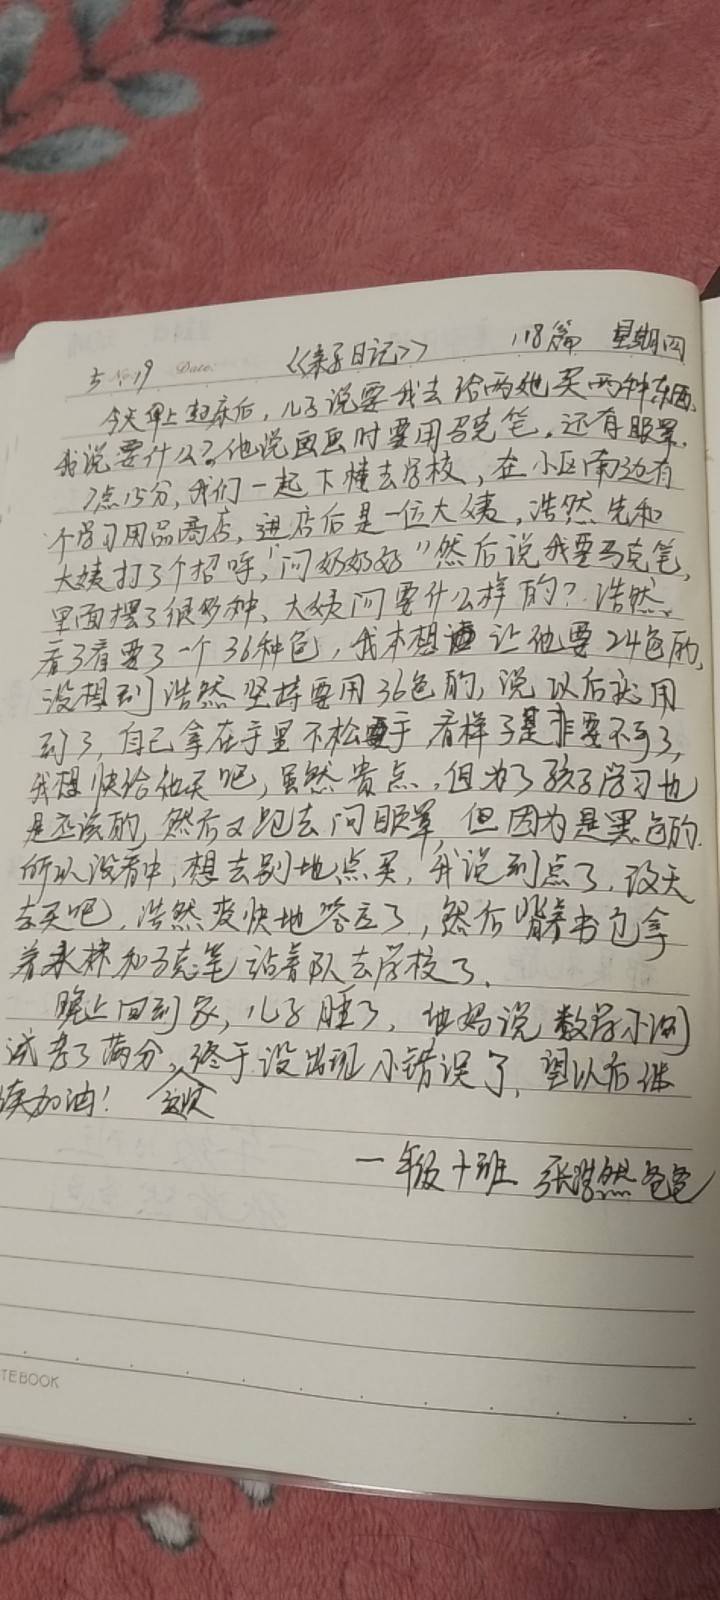 5.19 Date. 《亲子日记》 118篇 星期四
今天早上起床后，儿子说要我去给他买两种东西，
我说要什么？他说画画时要用马克笔。还有眼罩。
7点15分，我们一起下楼去学校，在小区南边有
个学习用品商店，进店后是一位大姨，浩然先和
大姨打了个招呼，"问奶奶好"然后说我要马克笔，
里面摆了很多种、大姨问要什么样的？浩然
看了看要了一个36种色，我本想 让他要24色的，
没想到浩然坚持要用36色的，说以后就用
到了，自己拿在手里不松手 看样子是非要不可了，
我想快给他买吧，虽然贵点，但为了孩子学习也
是应该的，然后又跑去问眼罩，但因为是黑色的.
所以没看中，想去别地点买，我说到点了，改天
去买吧，浩然爽快地答应了，然后背着书包拿
着水杯和马克笔站着队去学校了。
晚上回到家，儿子睡了，他妈说数学小测
试考了满分，这次终于没出现小错误了，望以后继
续加油！
一年级十班 张浩然爸爸
TEBOOK